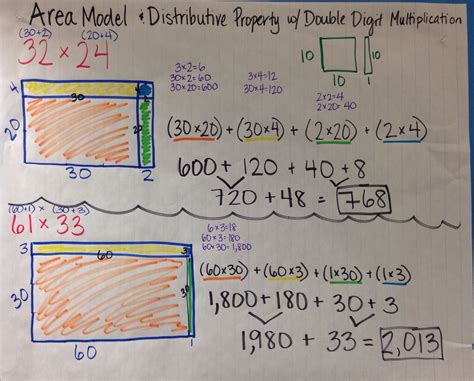 Area Model & Distributive Property w/ Double Digit Multiplication
(30+2) (20+4)
32 × 24
3×2=6
30×2=60
30×20=600
3×4=12
30×4=120
2×2=4
2×20=40
10
10
10
1
4
30
4
20
20
30
2
(30×20) + (30×4) + (2×20) + (2×4)
600 + 120 + 40 + 8
720 + 48 = 768
(60+1) × (30+3)
61 × 33
6×3=18
60×3=180
60×30=1,800
3
60
3
30
30
60
1
(60×30) + (60×3) + (1×30) + (1×3)
1,800 + 180 + 30 + 3
1980 + 33 = 2,013